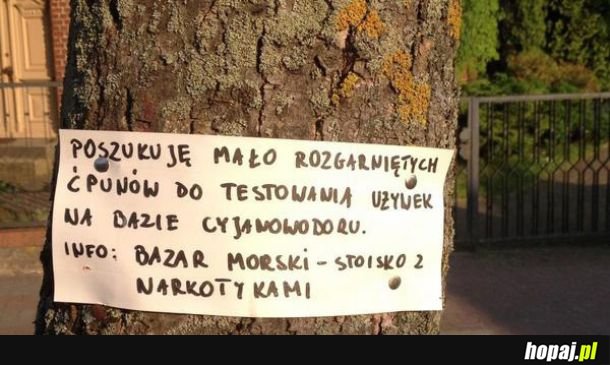 POSZUKUJĘ MAŁO ROZGARNIĘTYCH
ĆPUNÓW DO TESTOWANIA UŻYWEK
NA BAZIE CYJANOWODORU.
INFO: BAZAR MORSKI - STOISKO Z
NARKOTYKAMI
hopaj.pl